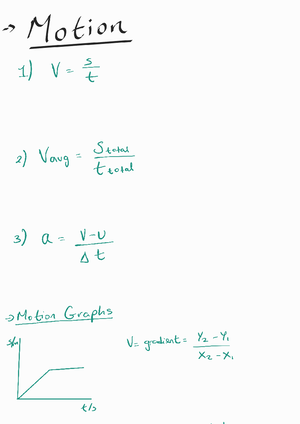 → Motion
1) V = s/t
2) Vavg = Stotal/ttotal
3) a = V-U/Δt
→ Motion Graphs
S/m
V = gradient = Y₂ - Y₁/X₂ - X₁
t/s